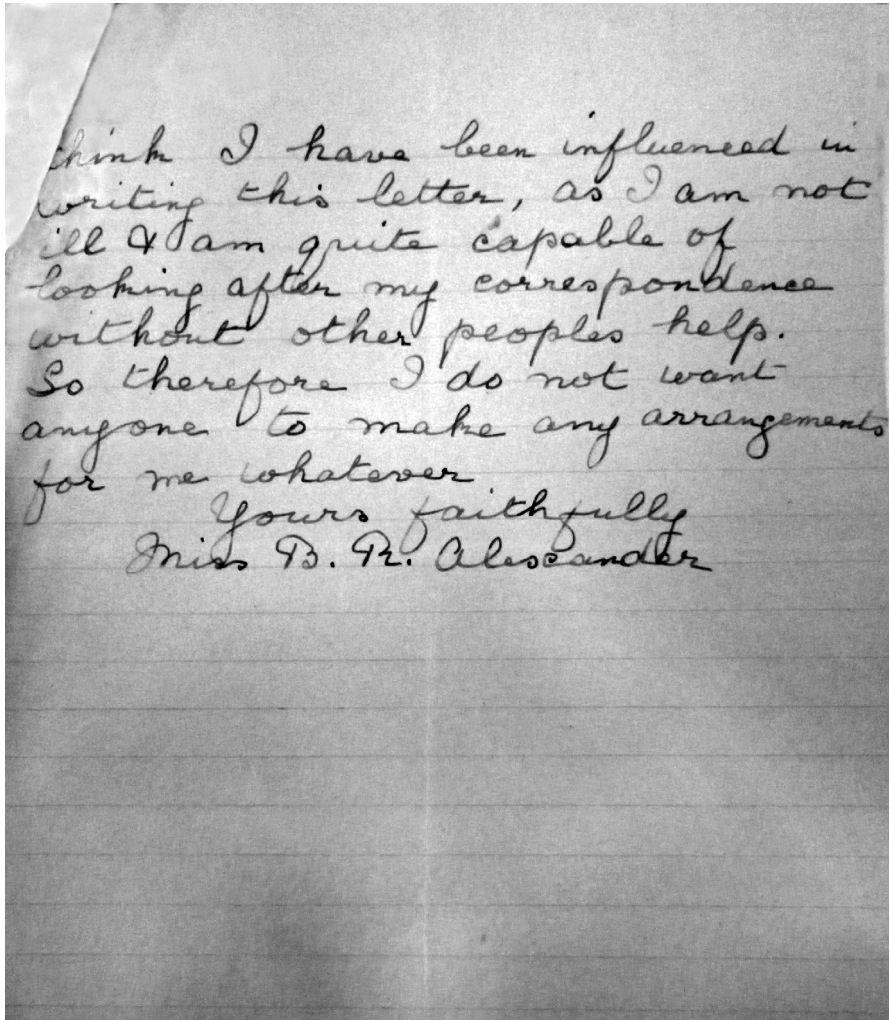 think I have been influenced in
writing this letter, as I am not
ill & I am quite capable of
looking after my correspondence
without other peoples help.
So therefore I do not want
anyone to make any arrangements
for me whatever
Yours faithfully
Miss B. R. Alexander